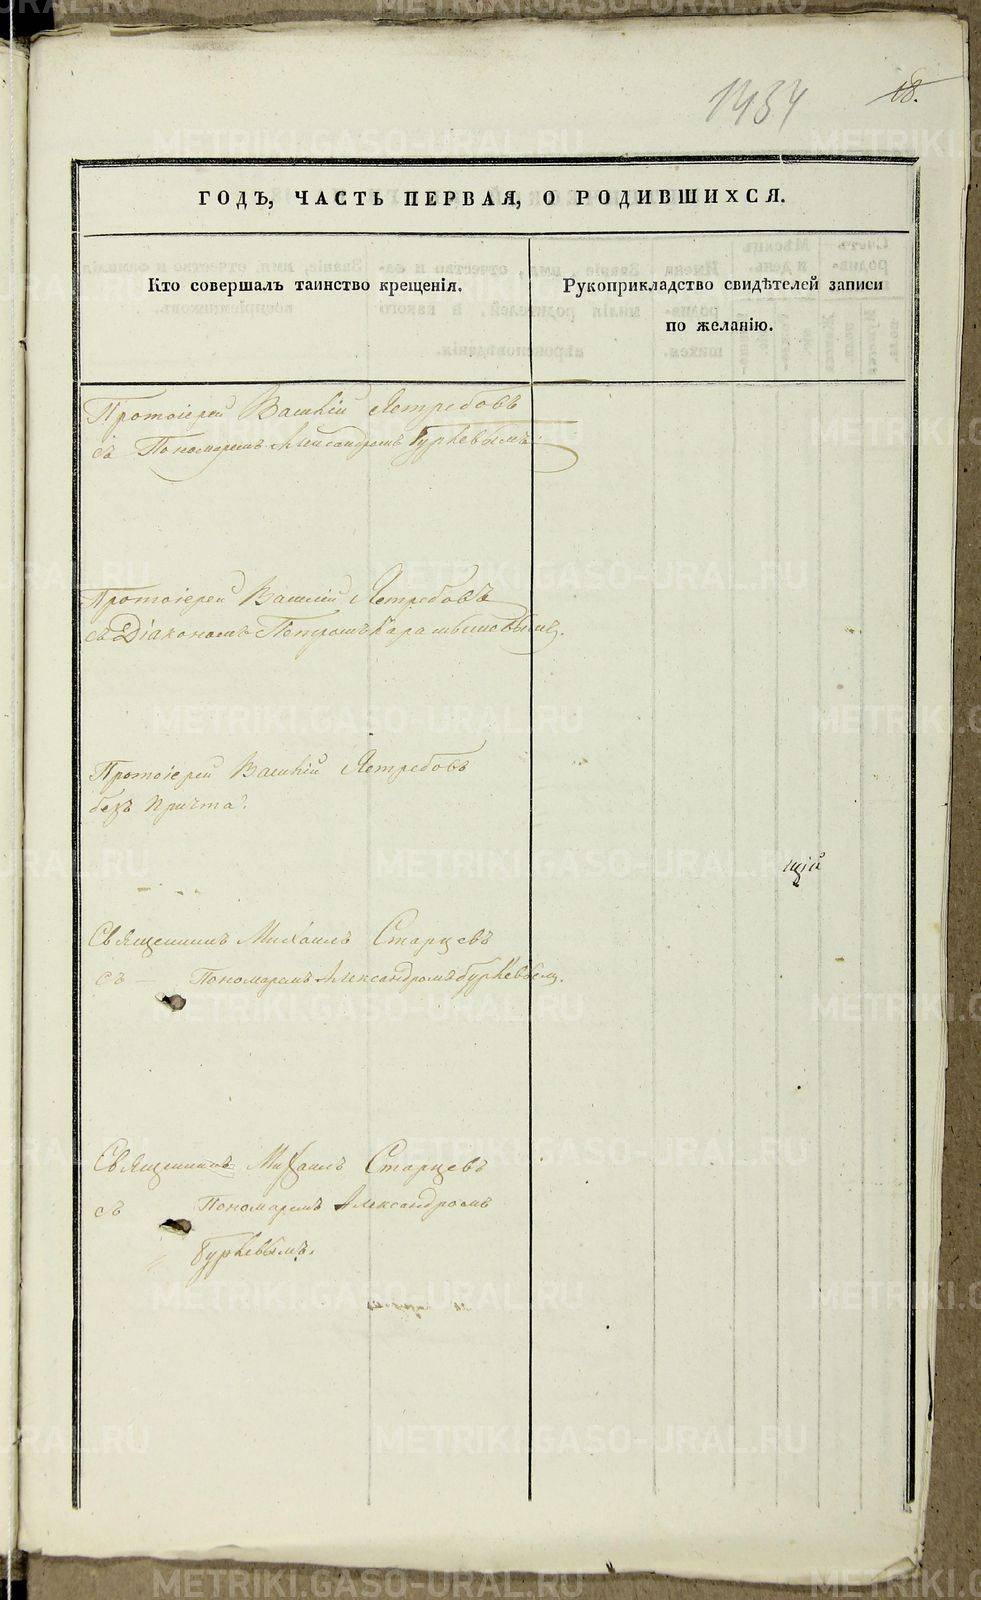 1434
18.
ГОДЪ, ЧАСТЬ ПЕРВАЯ, О РОДИВШИХСЯ.
Кто совершалъ таинство крещенія.
Рукоприкладство свидѣтелей записи
по желанію.
Протоіерей Василій Ястребовъ
съ Пономаремъ Александромъ Гурьевымъ.
Протоіерей Василій Ястребовъ
съ Діакономъ Петромъ
Протоіерей Василій Ястребовъ
безъ Причта.
щій
Священникъ Михаилъ Старцевъ
съ Пономаремъ Александромъ Гурьевымъ.
Священникъ Михаилъ Старцевъ
съ Пономаремъ Александромъ
Гурьевымъ.
METRIKI.GASO-URAL.RU